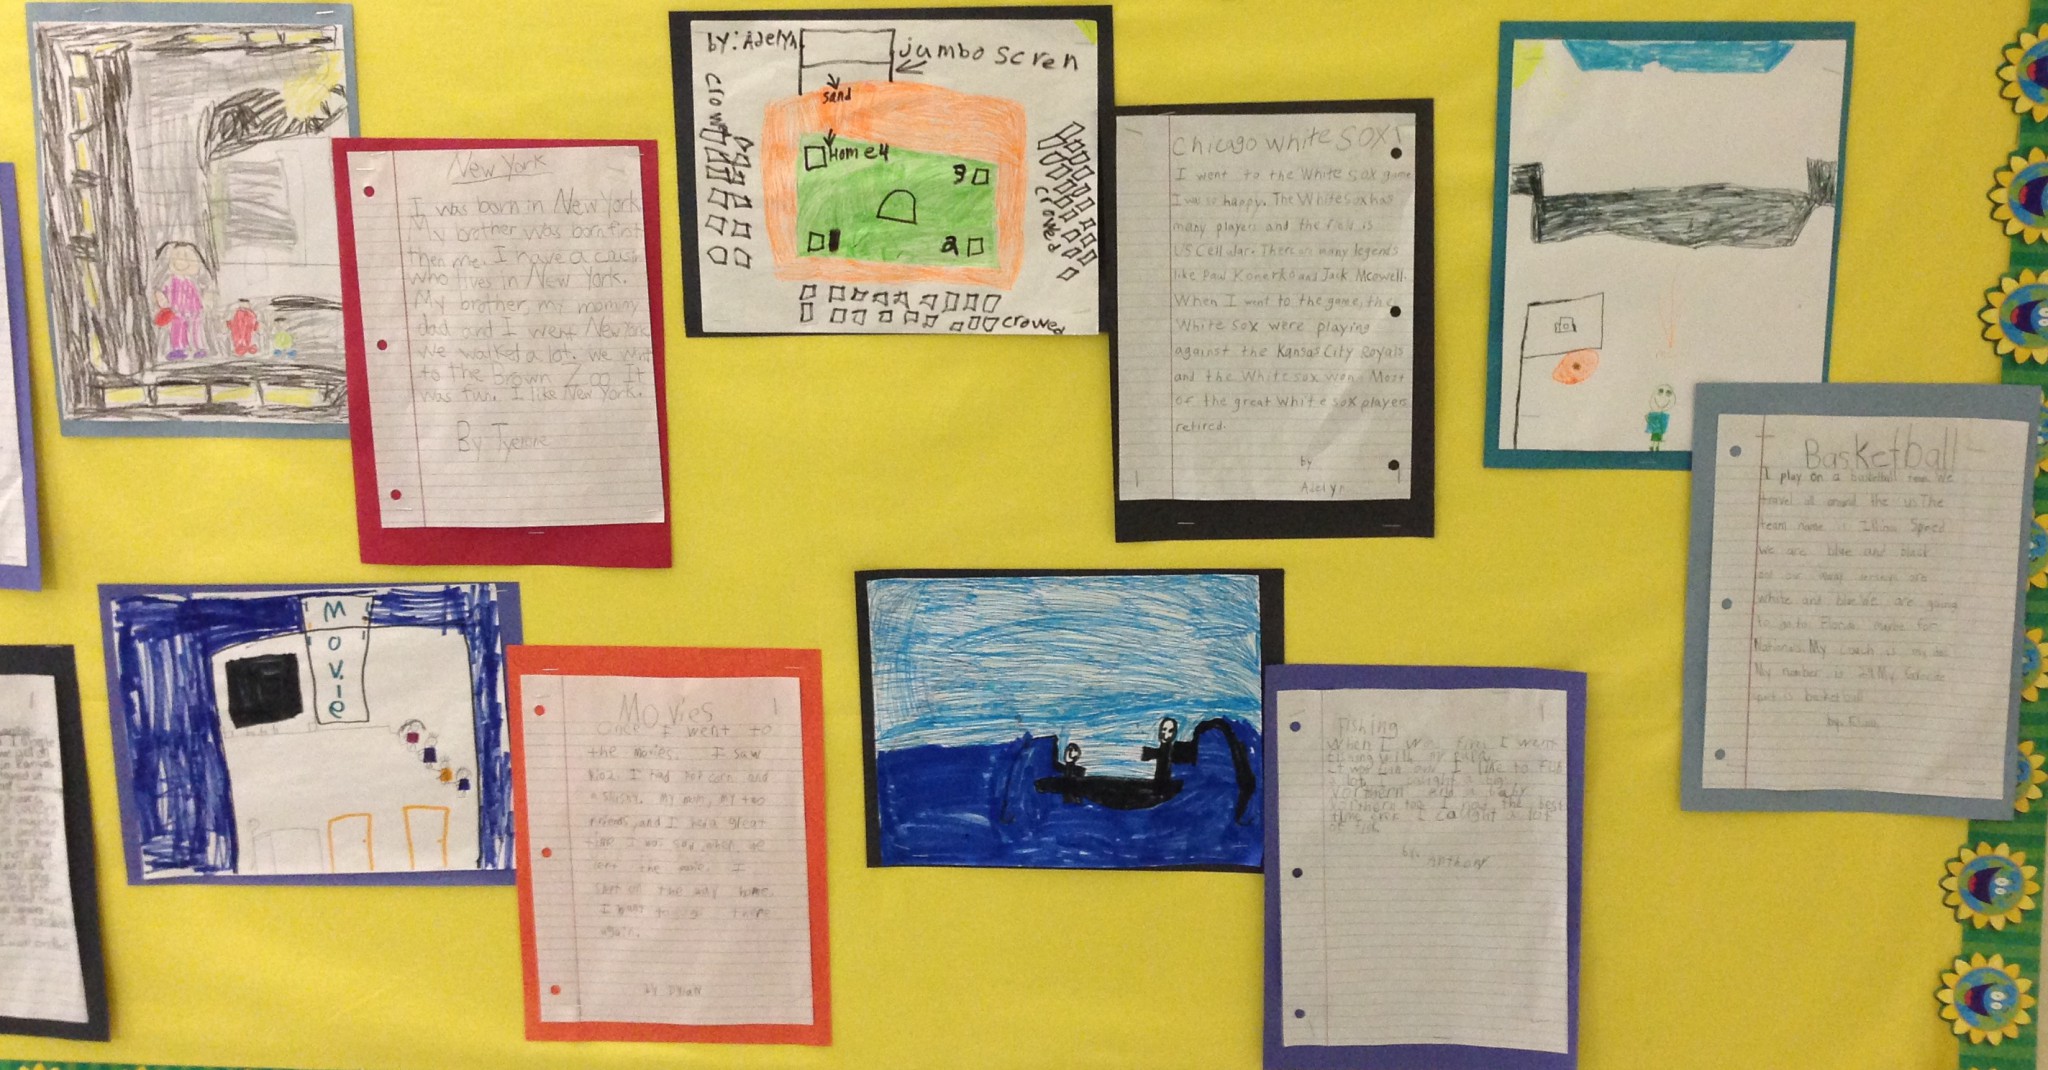 New York
I was born in New York
My brother was born first
then me. I have a cousin
who lives in New York.
My brother, my mommy
dad and I went New York
We walket a lot. We went
to the Brown Zoo It
was fun. I like New York.
By Tyerone
by: Adelyn
jumbo scren
sand
Home 4
3
1
2
crowed
crowed
Chicago White SOX!
I went to the White sox game
I was so happy. The White sox has
many players and the field is
US Cellular. There are many legends
like Paul Konerko and Jack Mcowell.
When I went to the game, the
White Sox were playing
against the Kansas City Royals
and the White sox won. Most
of the great White sox players
retired.
by
Adelyn
Basketball
I play on a basketball team We
travel all around the us The
team name is Illinois Speed
We are blue and black
white and blue We are going
to go to Florida maybe for
Nationals. My coach is my dad
My number is
is basketball
by:
Movie
Movies
Once I went to
the movies. I saw
Rio2. I had popcorn and
a slushy. My mom, my two
friends, and I had a great
time I was sad when we
left the movie. I
slept on the way home.
I want to go there
again.
by Dylan
Fishing
When I was five I went
fishing with my
I like to fish
a lot. I caught a big
Northern and a baby
Northern too. I had the best
time ever. I caught a lot
of fish
by:
Anthony